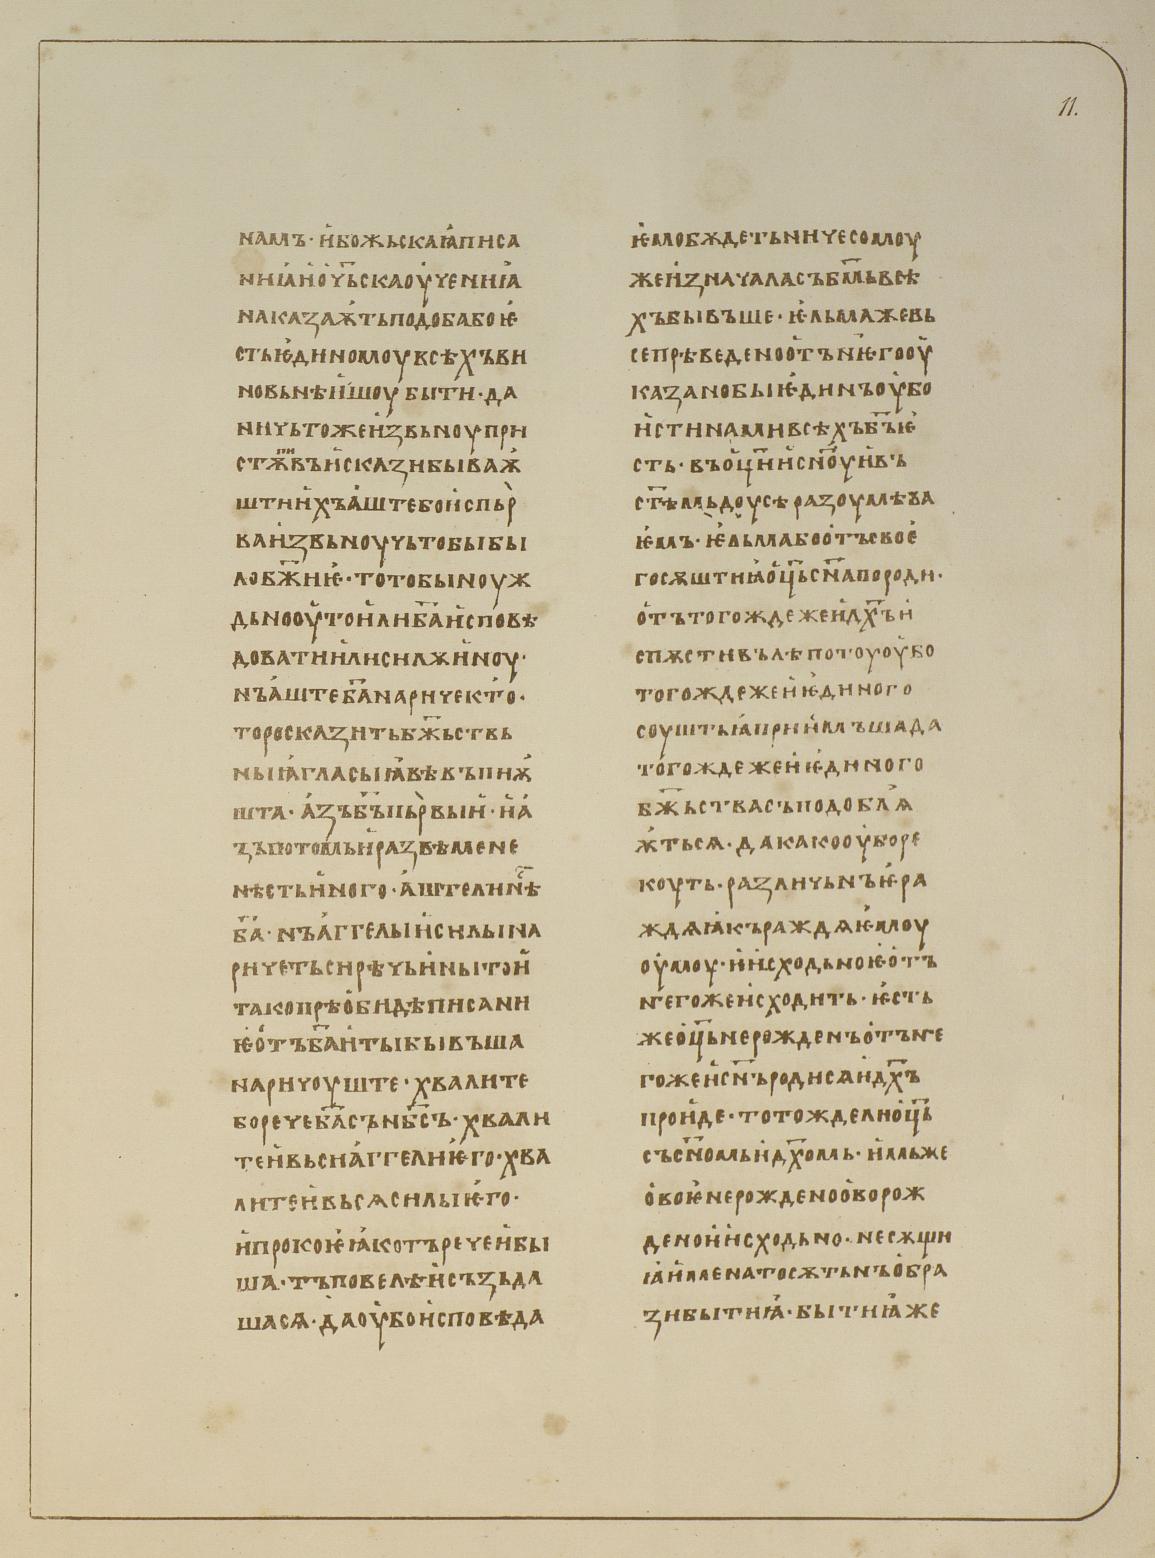 11.
намъ · и҆божьскаꙗ҆писа
ниꙗ҆и҆ѹ҆чьскаѹ҆чениꙗ҆
наказаѭ҆тьподобабоѥ҆
стьѥ҆диномѹвсѣхъви
новьнѣи҆шѹбыти · да
ничьтожеи҆звьнѹпри
стѫпивъи҆сказибываѭ҆
штиихъа҆штебои҆спьр
ваи҆звьнѹчьтобыбы
лобж҃иѥ · тотобынѹж
дьноѹ҆тои҆либ҃аи҆сповѣ
доватии҆лисилѫи҆нѹ ·
нъа҆штеб҃анаричекто ·
тороесказитьбж҃ьствь
ныꙗгласыꙗ҆вѣвъпиѭ҆
шта · а҆зъб҃ъпьрвыи · и҆а҆
зъпотомьи҆развѣмене
нѣстьи҆ного · а҆штелинѣс҃
б҃а · нъа҆ггелыи҆силына
ричетьсирѣчьи҆нытои҆
такопрѣо҆бидѣписани
ѥо҆тъб҃аи҆тыкывъша
наричѹште · хвалите
боречеб҃асънб҃съ · хвали
теи҆вьсиа҆ггелиѥ҆го · хва
литеи҆вьсѧсилыѥ҆го ·
и҆прокоѥ҆ꙗ҆котъречеи҆бы
ша · тъповелѣи҆съзьда
шасѧ · даѹ҆боисповѣда
ѥ҆мобѫдетьничесомѹ
жеи҆значаласъб҃мьвсѣ
хъбывъше · ѥ҆льмажевь
сепрѣведеноо҆тънѥгоѹ҆
казанобыѥ҆динъѹ҆бо
и҆стинамивсѣхъб҃ъѥ҆
сть · въо҆ц҃ии҆сн҃ѹи҆въ
ст҃ѣмьдѹсѣразѹмѣва
ѥ҆мъ · ѥ҆льмабоо҆тъсвоѥ
госѫштиꙗо҆ц҃ьсн҃апороди ·
о҆тътогождежеи҆дх҃ъи҆
спѫстивълѣпотѹѹ҆бо
тогождежеи҆ѥ҆диного
сѹштьꙗ҆прии҆мъшада
тогождежеи҆ѥ҆диного
бж҃ьствасъподоблѧ
ѭ҆тьсѧ · дакакоѹ҆боре
кѹть · различьнъѥ҆ра
ждѧꙗ҆къраждѧѥ҆мѹ
ѹ҆мѹ · и҆и҆сходьноѥ҆о҆тъ
негожеи҆сходить · ѥ҆сть
жео҆ц҃ьнерожденъо҆тъне
гожеи҆сн҃ъродисѧи҆дх҃ъ
прои҆де · тотождеио҆ц҃ь
съсн҃омьи҆дх҃омь · и҆мьже
о҆воѥ҆нерожденоо҆ворож
деноии҆сходьно · несѫщи
ꙗ҆и҆менатосѫтьнъо҆бра
зибытиꙗ҆ · бытиꙗже